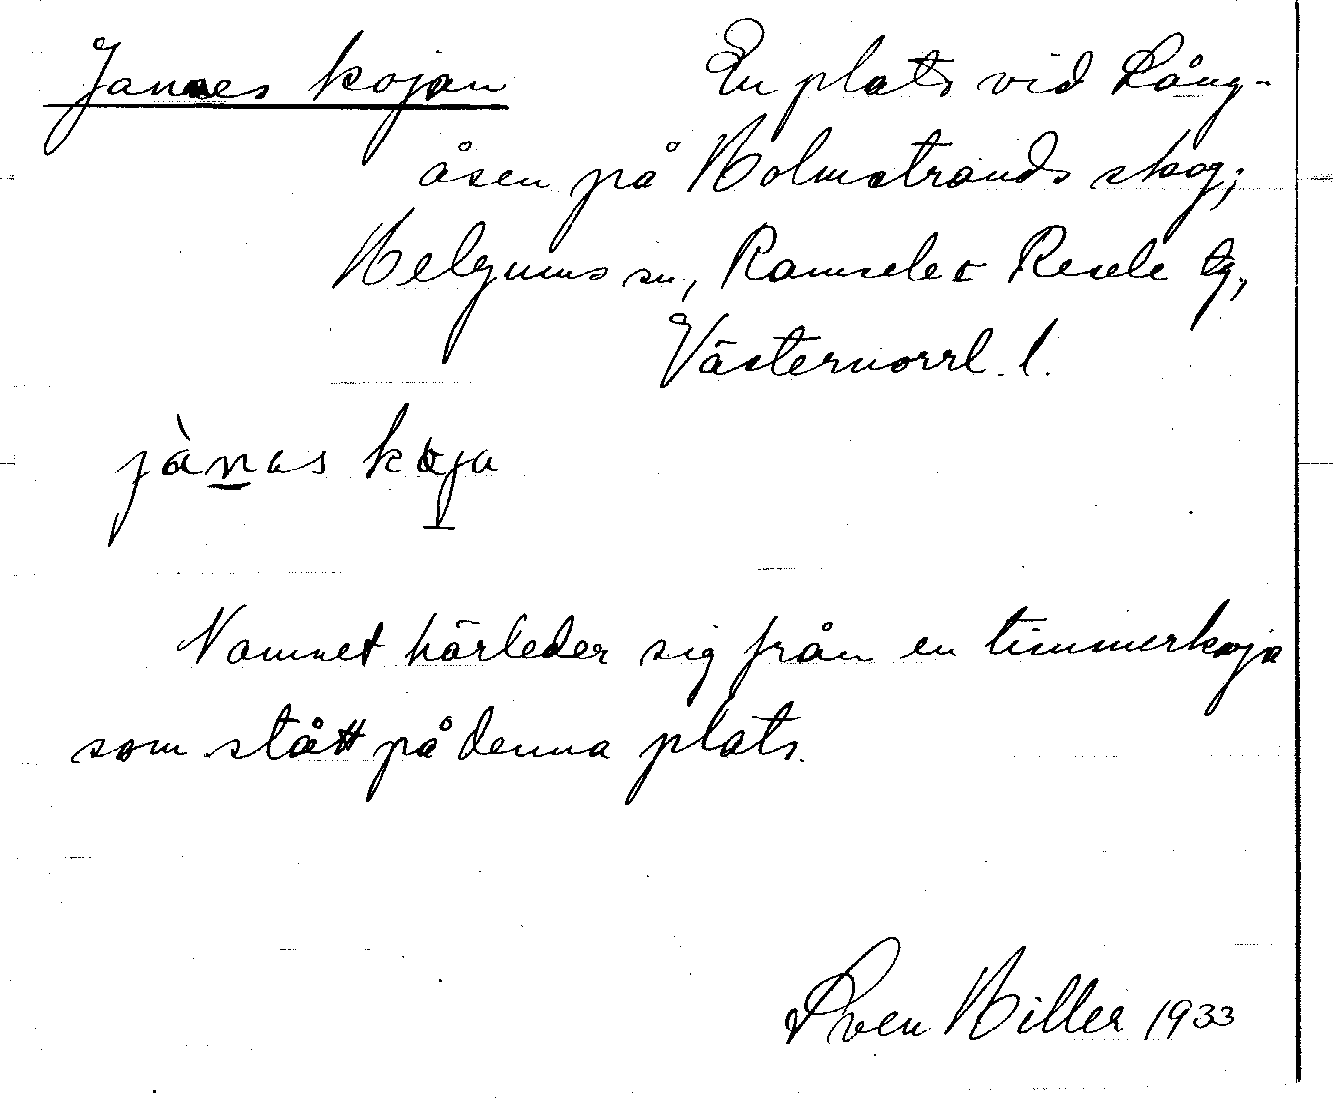 Jannes kojan En plats vid Lång-
åsen på Holmstrands skog;
Helgums sn, Ramsele o Resele tg,
Västernorrl. l.
jànas koja
Namnet härleder sig från en timmerkoja
som stått på denna plats.
Sven Hiller 1933